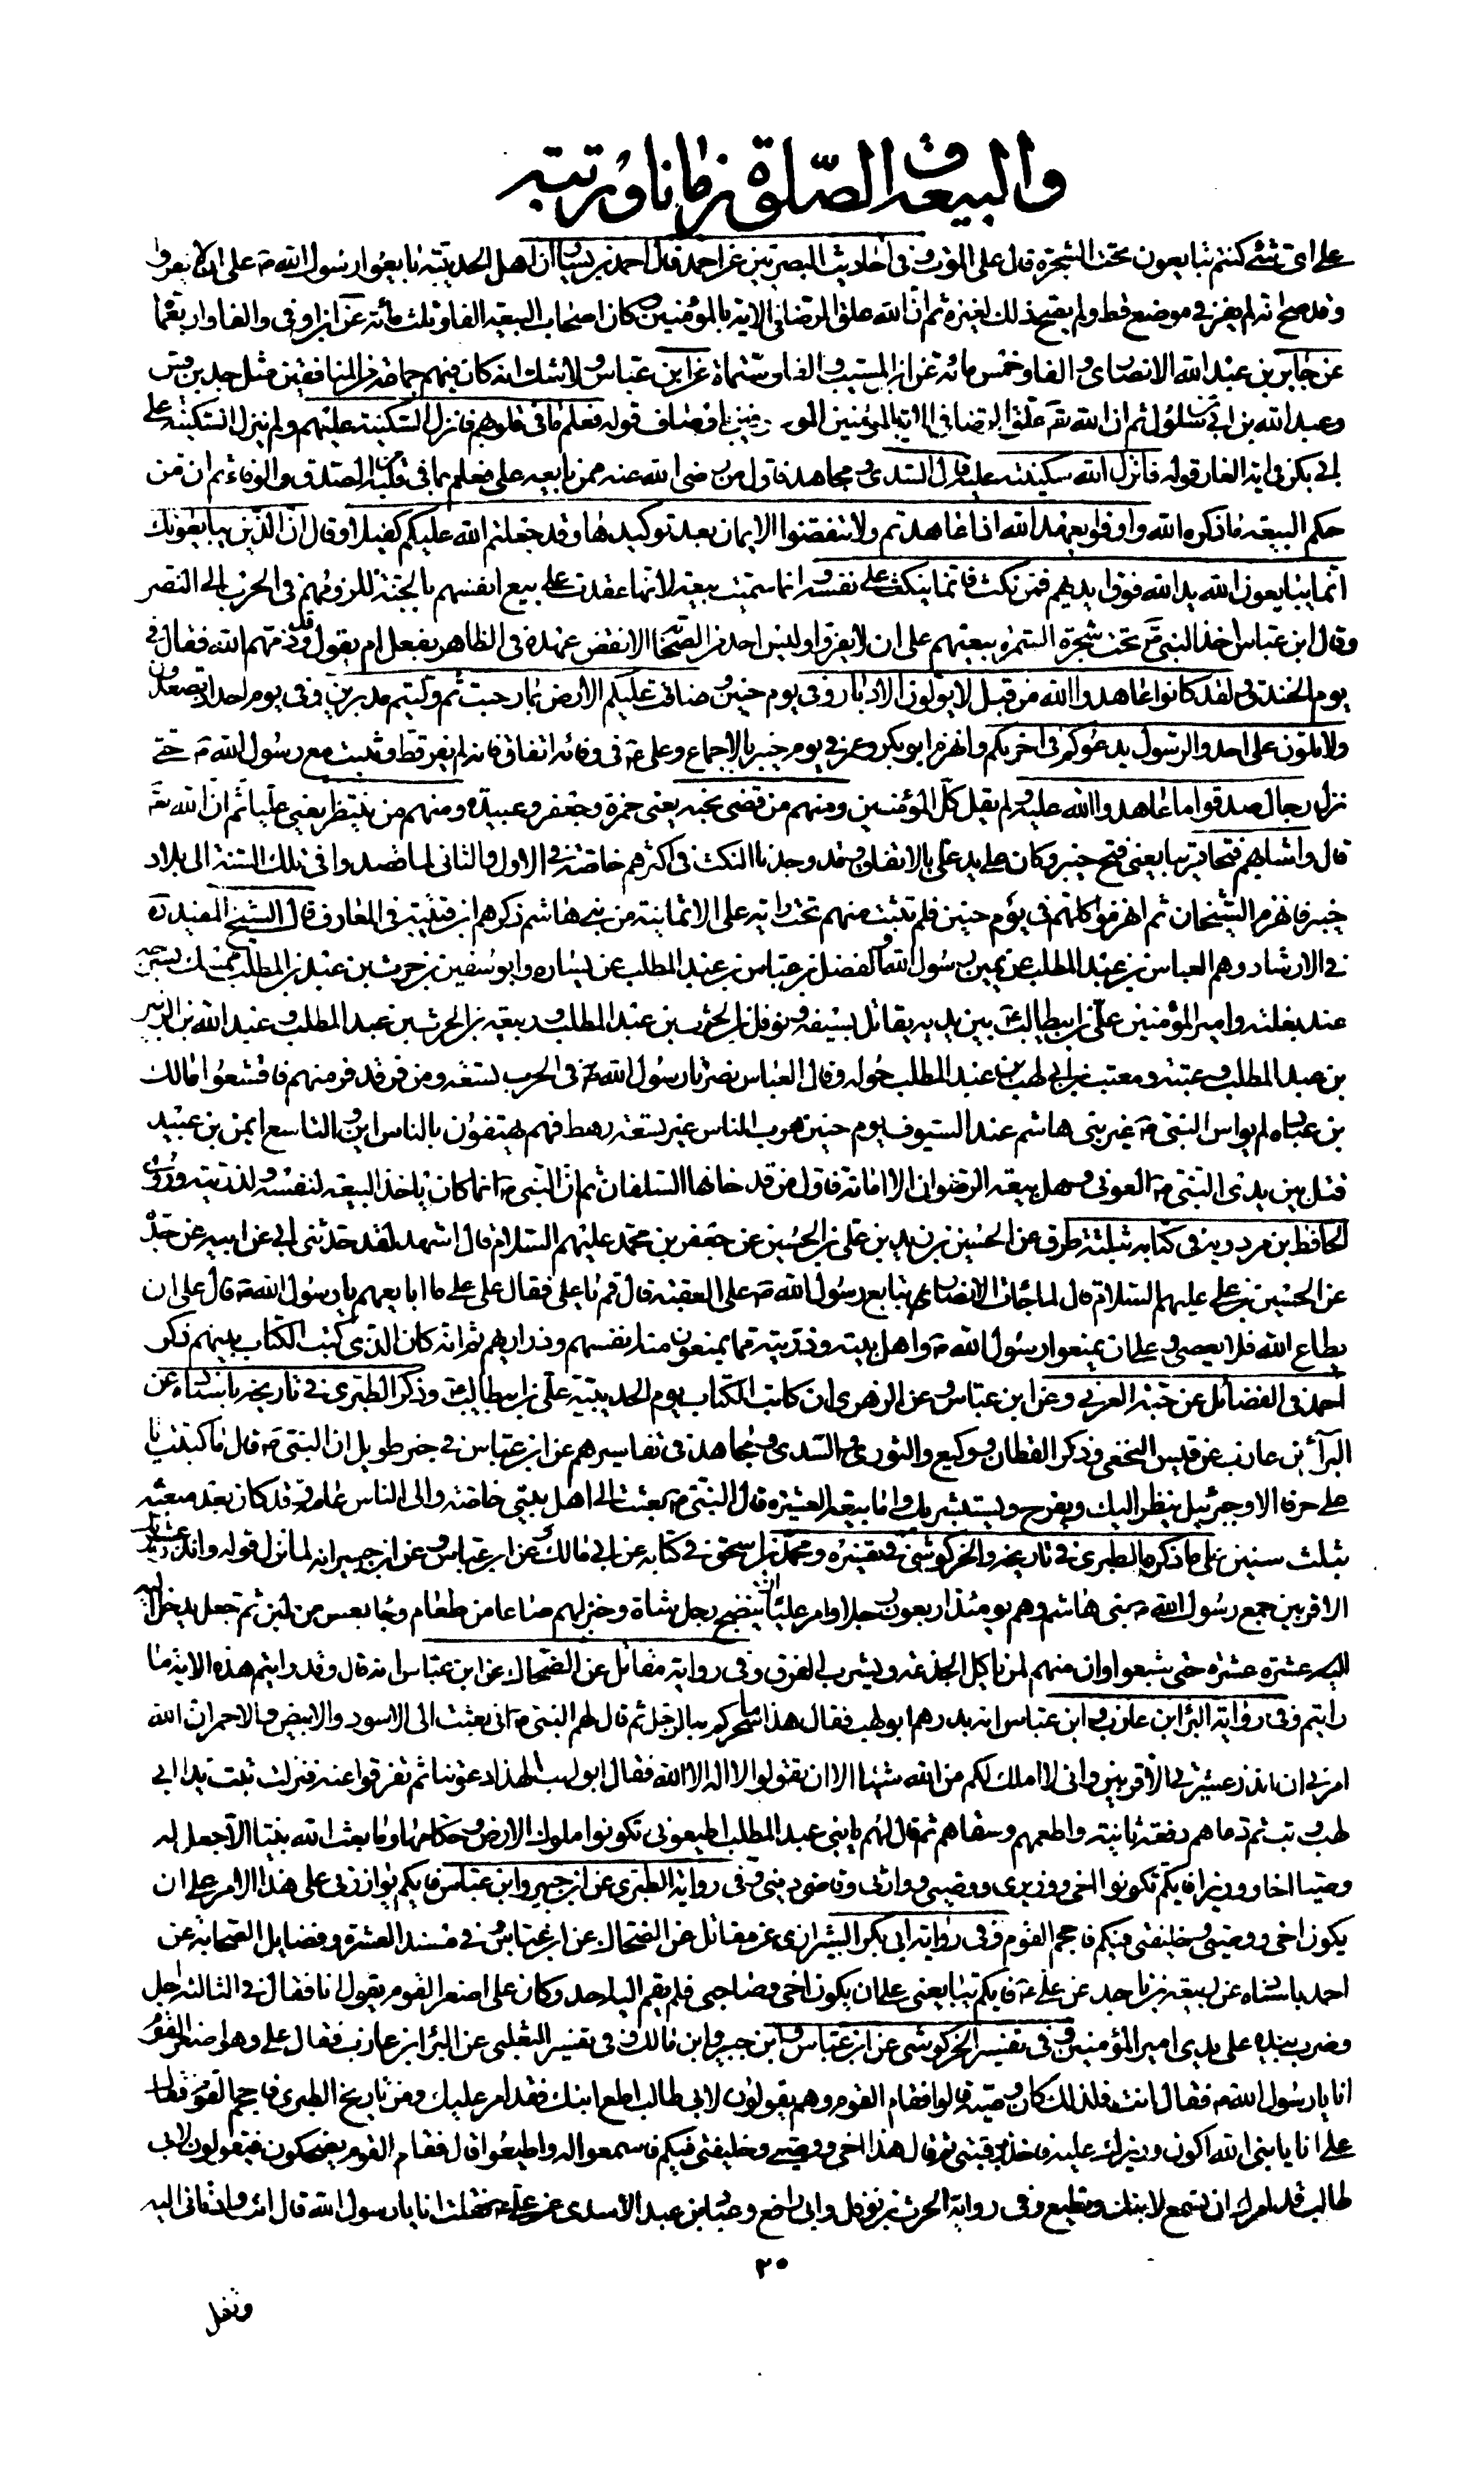 والبيعة والصلوة زمانا ورتبة
على اى شئ كنتم تبايعون تحت الشجرة قال على الموت وفى احاديث البصريين عن احمد قال احمد بن يسار ان اهل الحديبية بايعوا رسول الله ص على ان لا يفروا
وقد صح انه لم يفر فى موضع قط ولم يصح ذلك لغيره ثم ان الله علق الرضا فى الاية بالمؤمنين وكان اصحاب البيعة الفا وثلث مائة عن ابن اوفى والفا واربعمائة
عن جابر بن عبد الله الانصارى والفا وخمس مائة عن ابن المسيب والفا وستمائة عن ابن عباس ولا شك انه كان فيهم جماعة من المنافقين مثل جد بن قيس
وعبد الله بن ابى سلول ثم ان الله تعالى علق الرضا فى الاية بالمؤمنين الموصوفين باوصاف قوله فعلم ما فى قلوبهم فانزل السكينة عليهم ولم ينزل السكينة على
ابى بكر فى اية الغار قوله فانزل الله سكينته عليه قال السدى ومجاهد فاول من رضى الله عنه ممن بايعه على فعلم بما فى قلبه من الصدق والوفاء ثم ان من
حكم البيعة ما ذكره الله واوفوا بعهد الله اذا عاهدتم ولا تنقضوا الايمان بعد توكيدها وقد جعلتم الله عليكم كفيلا وقال ان الذين يبايعونك
انما يبايعون الله يد الله فوق ايديهم فمن نكث فانما ينكث على نفسه وانما سميت بيعة لانها عقدت على بيع انفسهم بالجنة للزومهم فى الحرب الى النصر
وقال ابن عباس اخذ النبى ص تحت شجرة السمرة بيعتهم على ان لا يفروا وليس احد من الصحابة الا نقض عهده فى الظاهر بفعل ام بقول وقد ذمهم الله فقال فى
يوم الخندق ولقد كانوا عاهدوا الله من قبل لا يولون الادبار وفى يوم حنين وضاقت عليكم الارض بما رحبت ثم وليتم مدبرين وفى يوم احد اذ تصعدون
ولا تلوون على احد والرسول يدعوكم فى اخريكم وانهزم ابو بكر وعمر فى يوم خيبر بالاجماع وعلى ع فى وفائه اتفاق فانه لم يفر قط وثبت مع رسول الله ص حتى
نزل رجال صدقوا ما عاهدوا الله عليه ولم يقل كل المؤمنين ومنهم من قضى نحبه يعنى حمزة وجعفر وعبيدة ومنهم من ينتظر يعنى عليا ثم ان الله تعالى
قال واثابهم فتحا قريبا يعنى فتح خيبر وكان على يد على بالاتفاق وقد وجدنا النكث فى اكثرهم خاصة فى الاول والثانى لما قصدوا فى تلك السنة الى بلاد
خيبر فانهزم الشيخان ثم انهزموا كلهم فى يوم حنين فلم تثبت منهم تحت رايته على الا ثمانية من بنى هاشم ذكرهم ابن قتيبة فى المعارف قال الشيخ المفيد ره
فى الارشاد وهم العباس بن عبد المطلب عن يمين رسول الله والفضل بن عباس بن عبد المطلب عن يساره وابو سفين بن حرث بن عبد المطلب ممسك بسرجه
عند بغلته وامير المؤمنين على بن ابيطالب ع بين يديه يقاتل بسيفه ونوفل بن الحرث بن عبد المطلب وربيعة بن الحرث بن عبد المطلب وعبد الله بن الزبير
بن عبد المطلب وعتبة ومعتب ابنى ابى لهب بن عبد المطلب حوله وقال العباس نصرنا رسول الله ص فى الحرب تسعة ومن فر قد فر منهم فاقشعوا مالك
بن عباده لم يواس النبى ص غير بنى هاشم عند السيوف يوم حنين هرب الناس غير تسعة رهط فهم يهتفون بالناس اين والتاسع ايمن بن عبيد
قتل بين يدى النبى ص العونى وهل بيعة الرضوان الا امانة فاول من قد خانها السلفان ثم ان النبى ص انما كان ياخذ البيعة لنفسه ولذريته وروى
الحافظ بن مردويه فى كتابه بثلثة طرق عن الحسين بن زيد بن على بن الحسين عن جعفر بن محمد عليهم السلام قال اشهد لقد حدثنى ابى عن ابيه عن جده
عن الحسين بن على عليهم السلام قال لما جاءت الانصار تبايع رسول الله ص على العقبة قال قم يا على فقال على على ما ابايعهم يا رسول الله ص قال على ان
يطاع الله فلا يعصى وعلى ان يمنعوا رسول الله ص واهل بيته وذريته مما يمنعون منه انفسهم وذراريهم ثم انه كان الذى كتب الكتاب بينهم ذكر
احمد فى الفضائل عن حبة العرنى وعن ابن عباس وعن الزهرى ان كاتب الكتاب يوم الحديبية على بن ابيطالب ع وذكر الطبرى فى تاريخه باسناده عن
البرآء بن عازب عن قيس النخعى وذكر القطان ووكيع والثورى والسدى ومجاهد فى تفاسيرهم عن ابن عباس فى خبر طويل ان النبى ص قال ما كتبت يا
على حرفا الا وجبرئيل ينظر اليك ويفرح ويستبشر بك واما بيعة العشيرة قال النبى ص بعثت الى اهل بيتى خاصة والى الناس عامة وقد كان بعد مبعثه
بثلث سنين على ما ذكره الطبرى فى تاريخه والخركوشى فى تفسيره ومحمد بن اسحق فى كتابه عن ابى مالك عن ابن عباس وعن ابن جبير انه لما نزل قوله وانذر عشيرتك
الاقربين جمع رسول الله ص بنى هاشم وهم يومئذ اربعون رجلا وامر عليا ان ينضج رجل شاة وخبز لهم صاعا من طعام وجاء بعس من لبن ثم جعل يدخل اليه
اليه عشرة عشرة حتى شبعوا وان منهم لمن ياكل الجذعة ويشرب الفرق وفى رواية مقاتل عن الضحاك عن ابن عباس انه قال وقد رايتم هذه الاية ما
رايتم وفى رواية البرا ابن عازب وابن عباس انه بدرهم ابو لهب فقال هذا ما سحركم به الرجل ثم قال لهم النبى ص انى بعثت الى الاسود والابيض والاحمر ان الله
امرنى ان انذر عشيرتى الاقربين وانى لا املك لكم من الله شيئا الا ان تقولوا لا اله الا الله فقال ابو لهب الهذا دعوتنا ثم تفرقوا عنه فنزلت تبت يدا ابى
لهب وتب ثم دعاهم دفعة ثانية واطعمهم وسقاهم ثم قال لهم يا بنى عبد المطلب اطيعونى تكونوا ملوك الارض وحكامها وما بعث الله نبيا الا جعل له
وصيا اخا ووزيرا فايكم يكون اخى ووزيرى ووصيى ووارثى وقاضى دينى وفى رواية الطبرى عن ابن جبير وابن عباس فايكم يوازرنى على هذا الامر على ان
يكون اخى ووصيى وخليفتى فيكم فاحجم القوم وفى رواية ابى بكر الشيرازى عن مقاتل عن الضحاك عن ابن عباس وفى مسند العشرة وفضايل الصحابة عن
احمد باسناده عن ربيعة بن ناجد عن على ع فايكم يبايعنى على ان يكون اخى وصاحبى فلم يقم اليه احد وكان على اصغر القوم يقول انا فقال فى الثالثة اجل
وضرب بيده على يدى امير المؤمنين وفى تفسير الخركوشى عن ابن عباس وابن جبير وابن مالك وفى تفسير الثعلبى عن البرا ابن عازب فقال على وهو اصغر القوم
انا يا رسول الله ص فقال انت فلذلك كان وصيه قالوا فقام القوم وهم يقولون لابى طالب اطع ابنك فقد امر عليك ومن تاريخ الطبرى فاحجم القوم فقال
على انا يا نبى الله اكون وزيرك عليه فاخذ برقبتى ثم قال هذا اخى ووصيى وخليفتى فيكم فاسمعوا له واطيعوا قال فقام القوم يضحكون فيقولون لابى
طالب قد امرك ان تسمع لابنك وتطيع وفى رواية الحرث بن نوفل وابى رافع وعباد بن عبد الله الأسدى عن على ع فقلت انا يا رسول الله قال انت وادنانى اليه
٢٠
وتفل